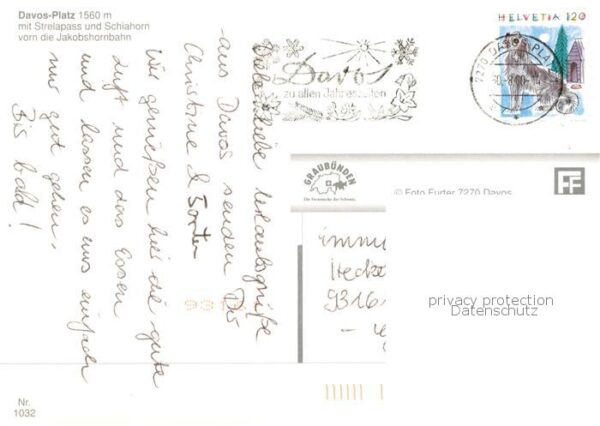 Davos-Platz 1560 m
mit Strelapass und Schiahorn
vorn die Jakobshornbahn
HELVETIA 120
7270 DAVOS PLATZ
Davos
zu allen Jahreszeiten
GRAUBÜNDEN
Die Ferienecke der Schweiz.
© Foto Furter 7270 Davos
Liebe Urlaubsgrüße
aus Davos senden Dir
Christine &
Wir genießen hier die gute
Luft und das Essen
und lassen es uns einfach
nur gut gehen.
Bis bald!
9316
privacy protection
Datenschutz
Nr.
1032